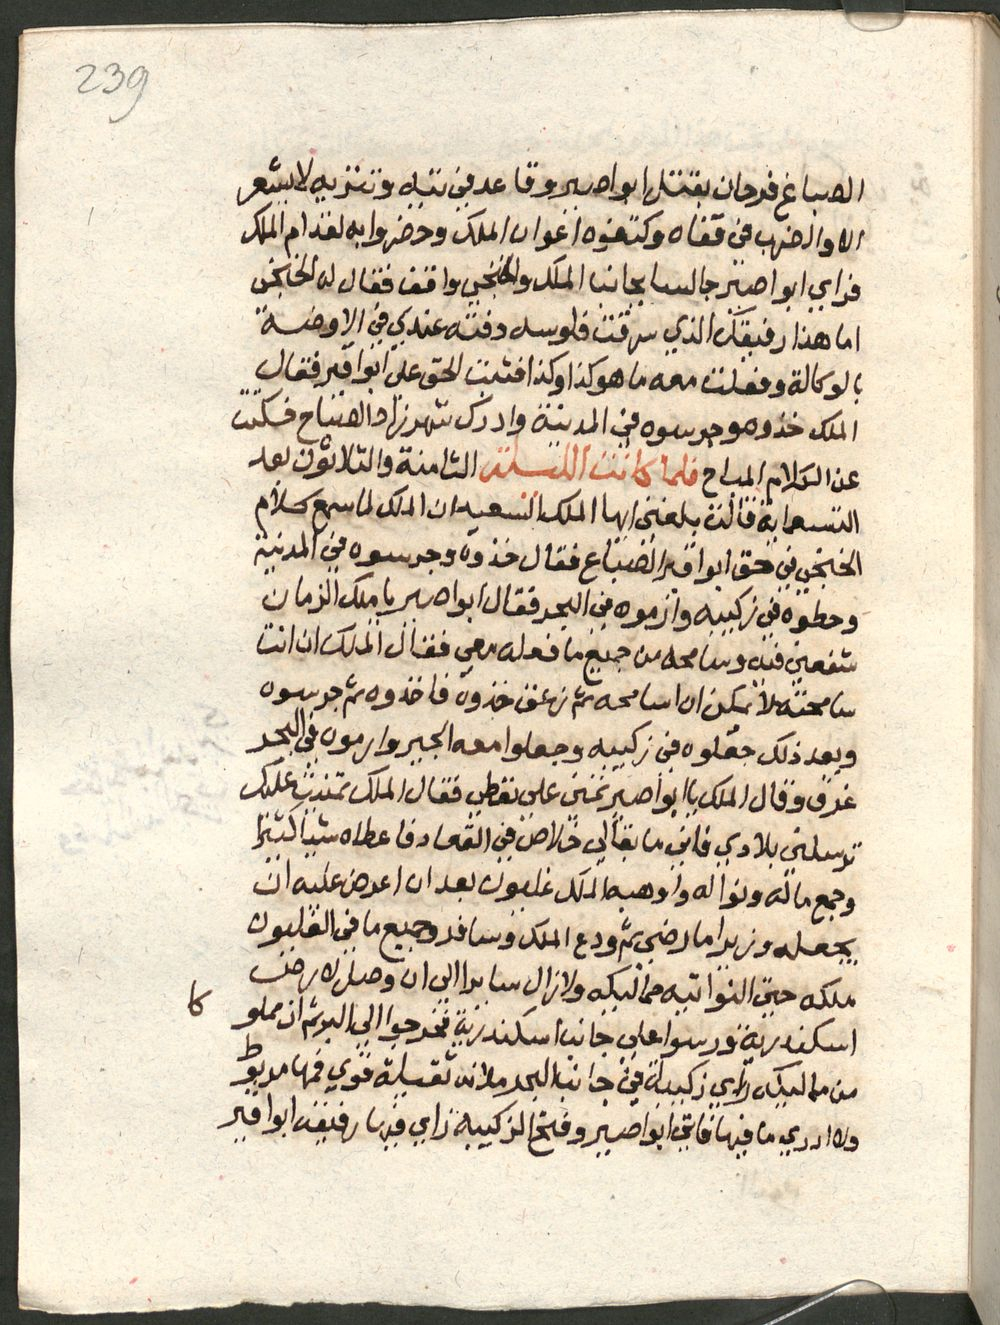 239
الصباغ فرحان بقتل ابواصير وقاعد في تيه وتنزيه لا يشعر
الا والضرب في قفاه وكتفوه اعوان الملك وحضروا به لقدام الملك
فراي ابواصير جالسا بجانب الملك والخنجي واقف فقال له الخانجي
اما هذا رفيقك الذي سرقت فلوسه وفته عندي في الاوضه
بالوكالة وفعلت معه ما هو كذا وكذا فثبت الحق على ابوا قير فقال
الملك خذوه وجرسوه في المدينة وادرك شهرزاد الصباح فسكتت
عن الكلام المباح فلما كانت الليلة الثامنة والثلاثون بعد
التسعماية قالت بلغني ايها الملك السعيد ان الملك لما سمع كلام
الخنجي في حق ابوا قير الصباغ فقال خذوه وجرسوه في المدينة
وحطوه في زكيبه وارموه في البحر فقال ابواصير يا ملك الزمان
شفعني فيه وسامحه من جميع ما فعله معي فقال الملك ان انت
سامحته لا يمكن ان اسامحه ثم زعق خذوه فاخذوه ثم جرسوه
وبعد ذلك حطوه في زكيبه وجعلوا معه الجير وارموه في البحر
غرق وقال الملك يا ابواصير تمنى علي تعطي فقال الملك تمنيت عليك
ترسلني بلادي فاني ما بقا لي خلاص في القعاد فاعطاه شيا كثيرا
وجمع ماله ونواله واوهبه الملك غليون بعد ان اعرض عليه ان
يجعله وزيرا ما رضي ثم ودع الملك وسافر وجميع ما في الغليون
ملكه حتى النواتيه مماليكه ولا زال سايرا الى ان وصل لارض
اسكندرية ورسوا على جانب اسكندرية فخرجوا الي البر ثم ان مملوكا
من مماليكه راي زكيبة في جانب البحر ملانه ثقيلة قوي فمها مربوط
ولا ادري ما فيها فاتي ابواصير وفتح الزكيبة راي فيها رفيقه ابوا قير